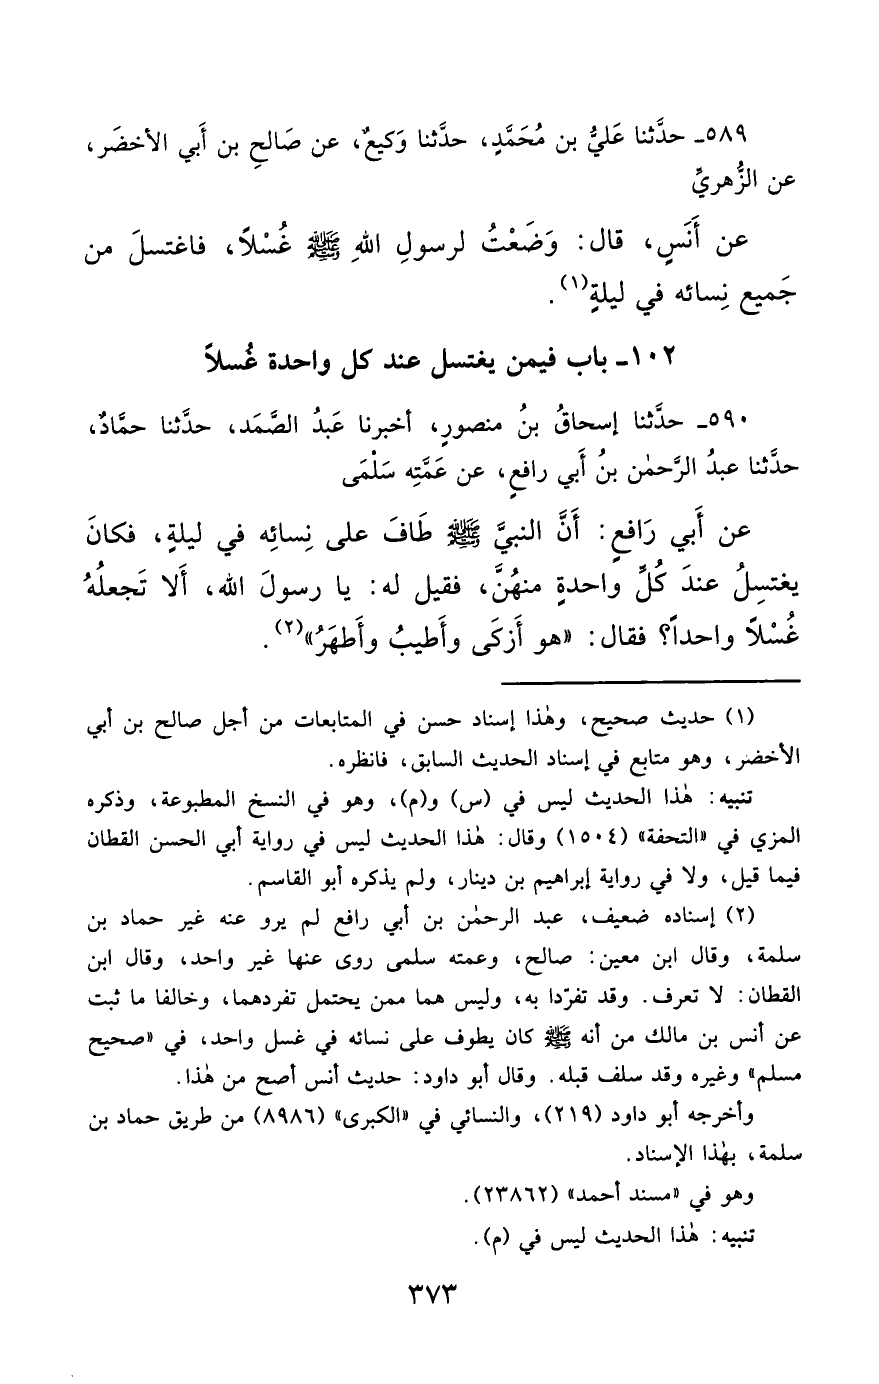 ٥٨٩ـ حدَّثنا عَليُّ بن مُحَمَّدٍ، حدَّثنا وَكيعٌ، عن صَالحِ بن أَبي الأخضَر،
عن الزُّهريِّ
عن أَنَسٍ، قال: وَضَعْتُ لرسولِ اللهِ ﷺ غُسْلاً، فاغتسلَ من
جَميع نِسائه في ليلةٍ(١).
١٠٢ـ باب فيمن يغتسل عند كل واحدة غُسلاً
٥٩٠ـ حدَّثنا إسحاقُ بنُ منصورٍ، أخبرنا عَبدُ الصَّمَد، حدَّثنا حمَّادٌ،
حدَّثنا عبدُ الرَّحمٰن بنُ أَبي رافعٍ، عن عَمَّتِه سَلْمَى
عن أَبي رَافعٍ: أَنَّ النبيَّ ﷺ طَافَ على نِسائِه في ليلةٍ، فكانَ
يغتسِلُ عندَ كُلِّ واحدةٍ منهُنَّ، فقيل له: يا رسولَ الله، أَلا تَجعلُهُ
غُسْلاً واحداً؟ فقال: «هو أَزكَى وأَطيبُ وأَطهَرُ»(٢).
(١) حديث صحيح، وهٰذا إسناد حسن في المتابعات من أجل صالح بن أبي
الأخضر، وهو متابع في إسناد الحديث السابق، فانظره.
تنبيه: هٰذا الحديث ليس في (س) و(م)، وهو في النسخ المطبوعة، وذكره
المزي في «التحفة» (١٥٠٤) وقال: هٰذا الحديث ليس في رواية أبي الحسن القطان
فيما قيل، ولا في رواية إبراهيم بن دينار، ولم يذكره أبو القاسم.
(٢) إسناده ضعيف، عبد الرحمٰن بن أبي رافع لم يرو عنه غير حماد بن
سلمة، وقال ابن معين: صالح، وعمته سلمى روى عنها غير واحد، وقال ابن
القطان: لا تعرف. وقد تفرّدا به، وليس هما ممن يحتمل تفردهما، وخالفا ما ثبت
عن أنس بن مالك من أنه ﷺ كان يطوف على نسائه في غسل واحد، في «صحيح
مسلم» وغيره وقد سلف قبله. وقال أبو داود: حديث أنس أصح من هٰذا.
وأخرجه أبو داود (٢١٩)، والنسائي في «الكبرى» (٨٩٨٦) من طريق حماد بن
سلمة، بهٰذا الإسناد.
وهو في «مسند أحمد» (٢٣٨٦٢).
تنبيه: هٰذا الحديث ليس في (م).
٣٧٣